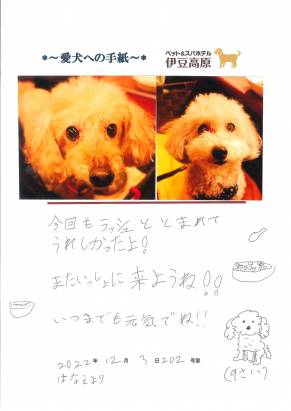 *~愛犬への手紙~*
ペット&スパホテル
伊豆高原
今回もラッシュととまれて
うれしかったよ!
またいっしょに来ようね!!
いつまでも元気でね!!
2022年 12月 3日 202号室
はなえより
(9さい)